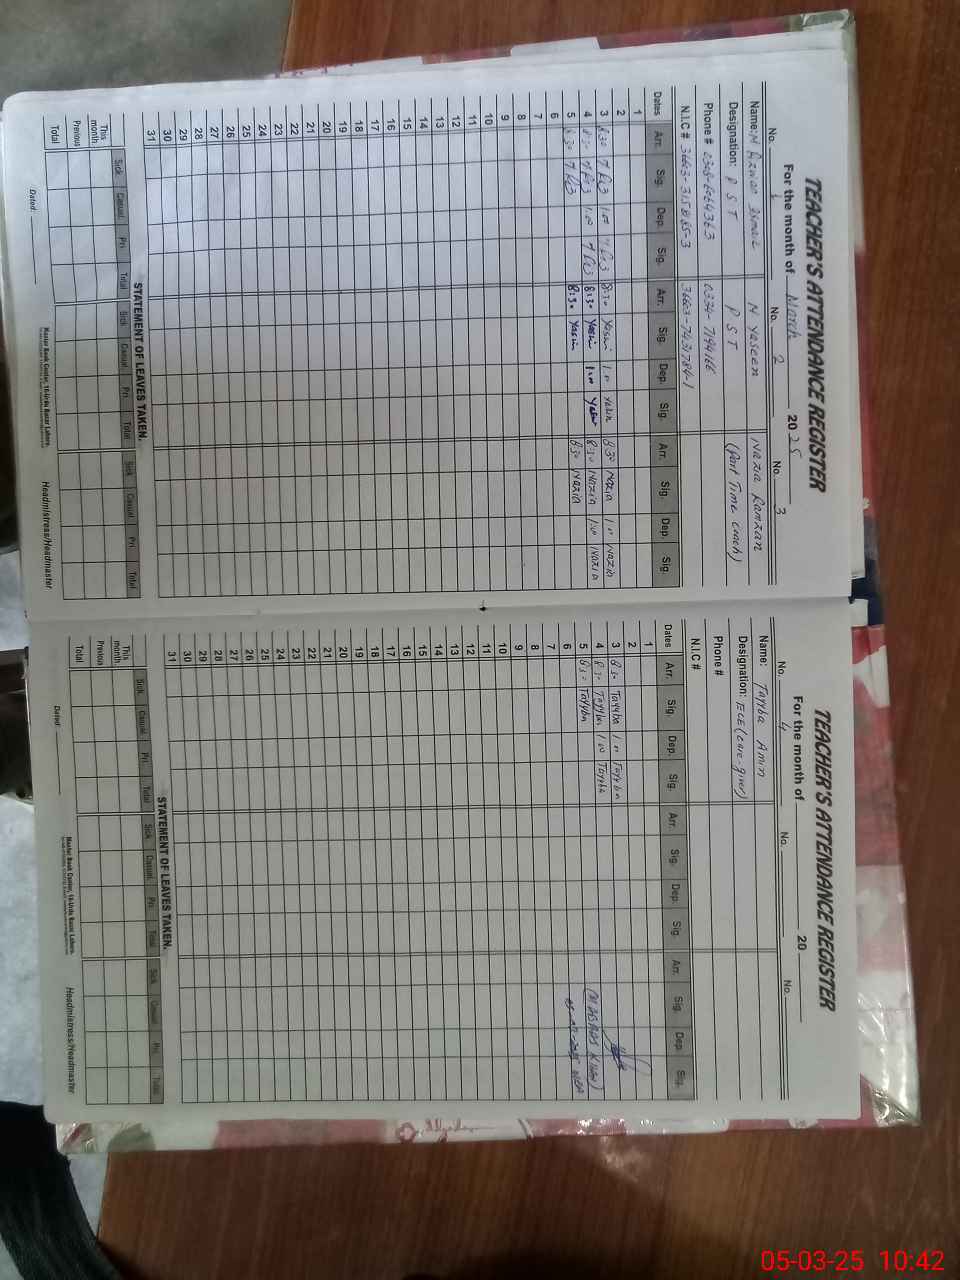 TEACHER'S ATTENDANCE REGISTER
For the month of March 2025
No. 1 No. 2 No. 3
Name: M Yaseen Nazia Ramzan
Designation: P S T P S T (Part Time coach)
Phone # 0334-7194166
N.I.C #
Dates Arr. Sig. Dep. Sig. Arr. Sig. Dep. Sig. Arr. Sig. Dep. Sig.
1
2
3 8:30 1:00 8:30 Yasin 1:00 Yasin 8:30 Nazia 1:00 Nazia
4 8:30 1:00 8:30 Yasin 1:00 Yasin 8:30 Nazia 1:00 Nazia
5 8:30 8:30 Yasin 8:30 Nazia
6
7
8
9
10
11
12
13
14
15
16
17
18
19
20
21
22
23
24
25
26
27
28
29
30
31
STATEMENT OF LEAVES TAKEN.
Sick Casual Pri Total Sick Casual Pri Total Sick Casual Pri Total
This month
Previous
Total
Master Book Center, 16-Urdu Bazar Lahore.
Dated: Headmistress/Headmaster
TEACHER'S ATTENDANCE REGISTER
For the month of 20
No. 4 No. No.
Name: Tayyba Amin
Designation: ECE (Care-giver)
Phone #
N.I.C #
Dates Arr. Sig. Dep. Sig. Arr. Sig. Dep. Sig. Arr. Sig. Dep. Sig.
1
2
3 8:30 Tayyba 1:00 Tayyba
4 8:30 Tayyba 1:00 Tayyba
5 8:30 Tayyba
6
7
8
9
10
11
12
13
14
15
16
17
18
19
20
21
22
23
24
25
26
27
28
29
30
31
STATEMENT OF LEAVES TAKEN.
Sick Casual Pri Total Sick Casual Pri Total Sick Casual Pri Total
This month
Previous
Total
Master Book Center, 16-Urdu Bazar Lahore.
Dated: Headmistress/Headmaster
05-03-25 10:42